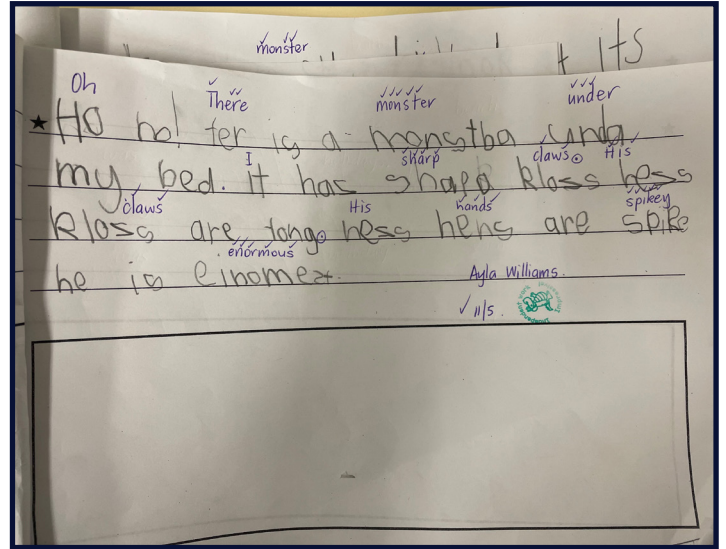 monster
Its
Oh There monster under
★ Ho no! ter is a monstba unda
I sharp claws. His
my bed. It has shapa kloss hess
claws His hands spikey
kloss are long. hess hens are spike
enormous
he is einomex.
Ayla Williams.
✓ 11/5.